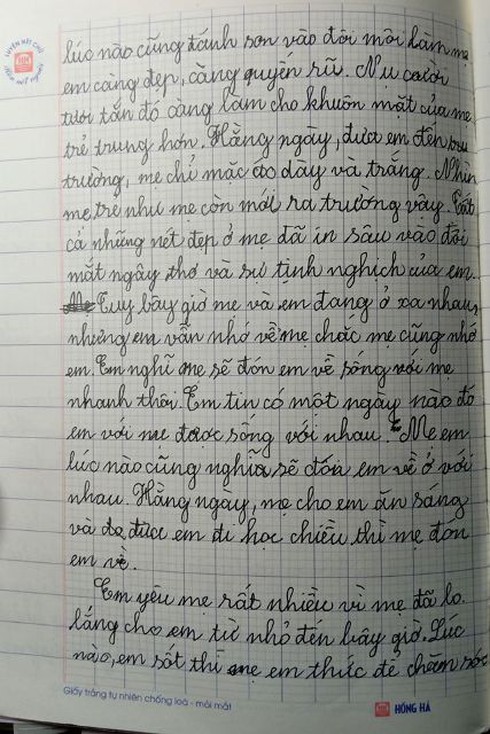 LUYỆN NÉT CHỮ
lúc nào cũng đánh son vào đôi môi làm mẹ
em càng đẹp, càng quyến rũ. Nụ cười
tươi tắn đó càng làm cho khuôn mặt của mẹ
trẻ trung hơn. Hằng ngày, đưa em đến
trường, mẹ chỉ mặc áo dày và trắng. Nhìn
mẹ trẻ như mẹ còn mới ra trường vậy. Tất
cả những nét đẹp ở mẹ đã in sâu vào đôi
mắt ngây thơ và sự tịnh nghịch của em.
Tuy bây giờ mẹ và em đang ở xa nhau,
nhưng em vẫn nhớ về mẹ chắc mẹ cũng nhớ
em. Em nghĩ mẹ sẽ đón em về sống với mẹ
nhanh thôi. Em tin có một ngày nào đó
em với mẹ được sống với nhau. Mẹ em
lúc nào cũng nghĩ sẽ đón em về ở với
nhau. Hằng ngày, mẹ cho em ăn sáng
và đưa em đi học chiều thì mẹ đón
em về.
Em yêu mẹ rất nhiều vì mẹ đã lo
lắng cho em từ nhỏ đến bây giờ. Lúc
nào, em sốt thì mẹ em thức đê chăm sóc
Giấy trắng tự nhiên chống loá - mỏi mắt
HỒNG HÀ